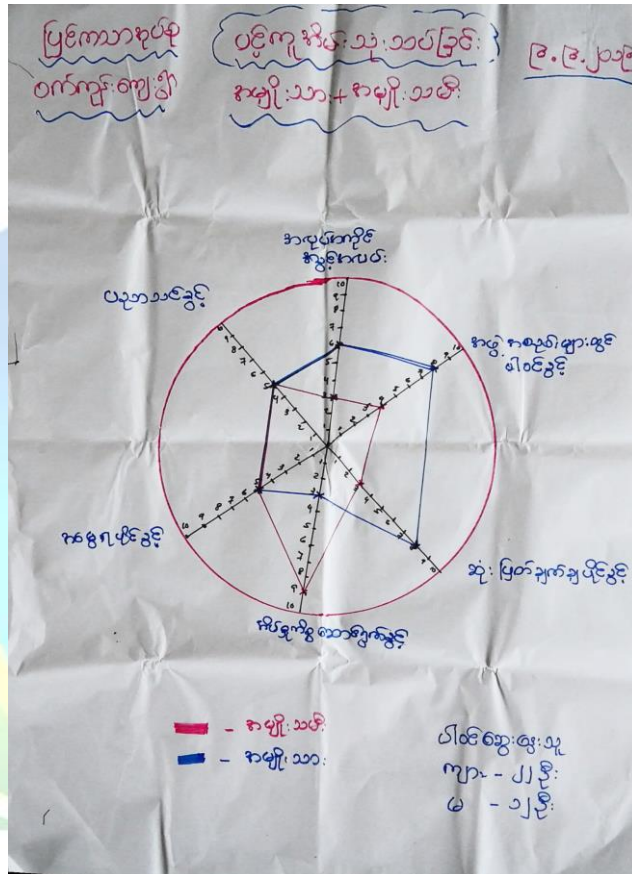 ပြင်ကသာအုပ်စု
ဝက်ကုန်းကျေးရွာ
ပင့်ကူအိမ်သုံးသပ်ခြင်း
အမျိုးသား + အမျိုးသမီး
အလုပ်အကိုင်
အခွင့်အလမ်း
ပညာသင်ခွင့်
အဖွဲ့အစည်းများတွင်
ပါဝင်ခွင့်
အမွေရပိုင်ခွင့်
ဆုံးဖြတ်ချက်ချပိုင်ခွင့်
အိမ်မှုကိစ္စဆောင်ရွက်ခွင့်
- အမျိုးသမီး
- အမျိုးသား
ပါဝင်ဆွေးနွေးသူ
ကျား - ၂၂ ဦး
မ - ၁၂ ဦး